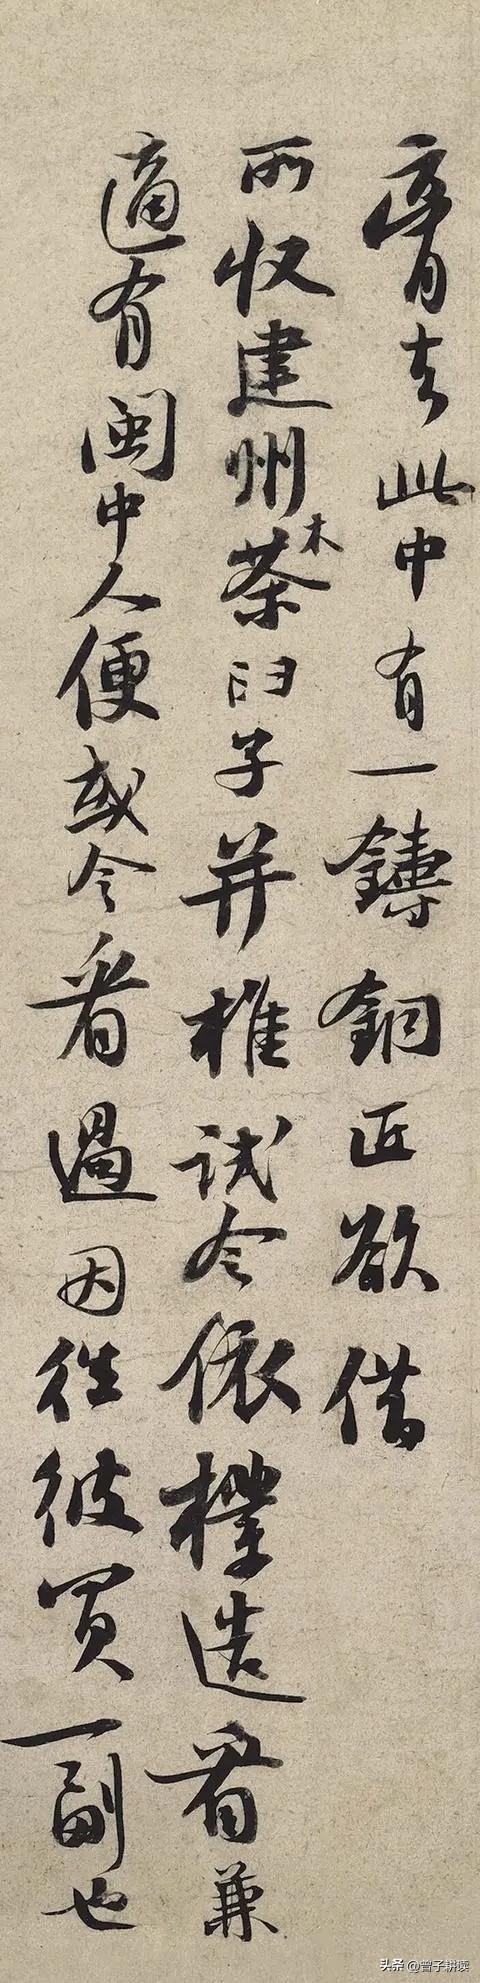 膏去此中有一鑄銅匠欲借
所收建州木茶臼子并椎試令依樣造看兼
適有閩中人便或令看過因往彼買一副也
头条 @曾子耕读